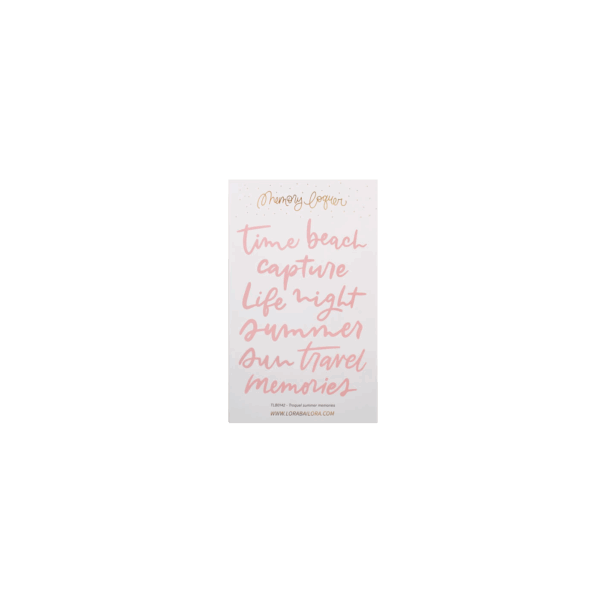 Memory
time beach
capture
life night
summer
sun travel
memories
summer memories
WWW.LORABAILORA.COM